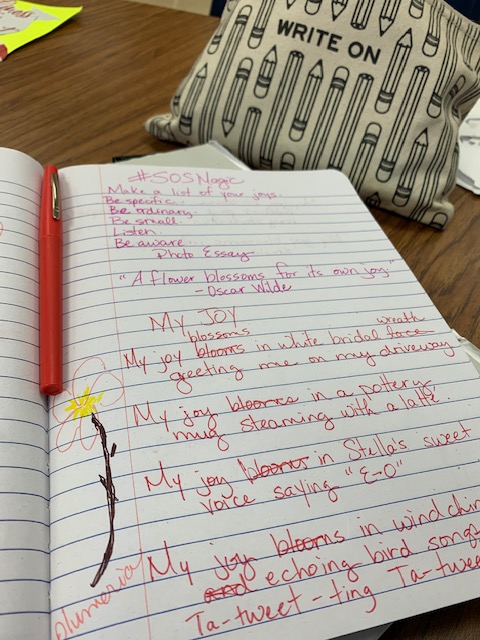 WRITE ON
#SOSMagic
Make a list of your joys.
Be specific.
Be ordinary.
Be small.
Listen.
Be aware.
Photo Essay
"A flower blossoms for its own joy."
- Oscar Wilde
My Joy
blossoms
wreath
My joy blooms in white bridal lace
greeting me on my driveway
My joy blooms in a pottery
mug steaming with a latte.
My joy blooms in Stella's sweet
voice saying "E-O"
My joy blooms in windchim
and echoing bird songs
Ta-tweet-ting Ta-twee
plumeria